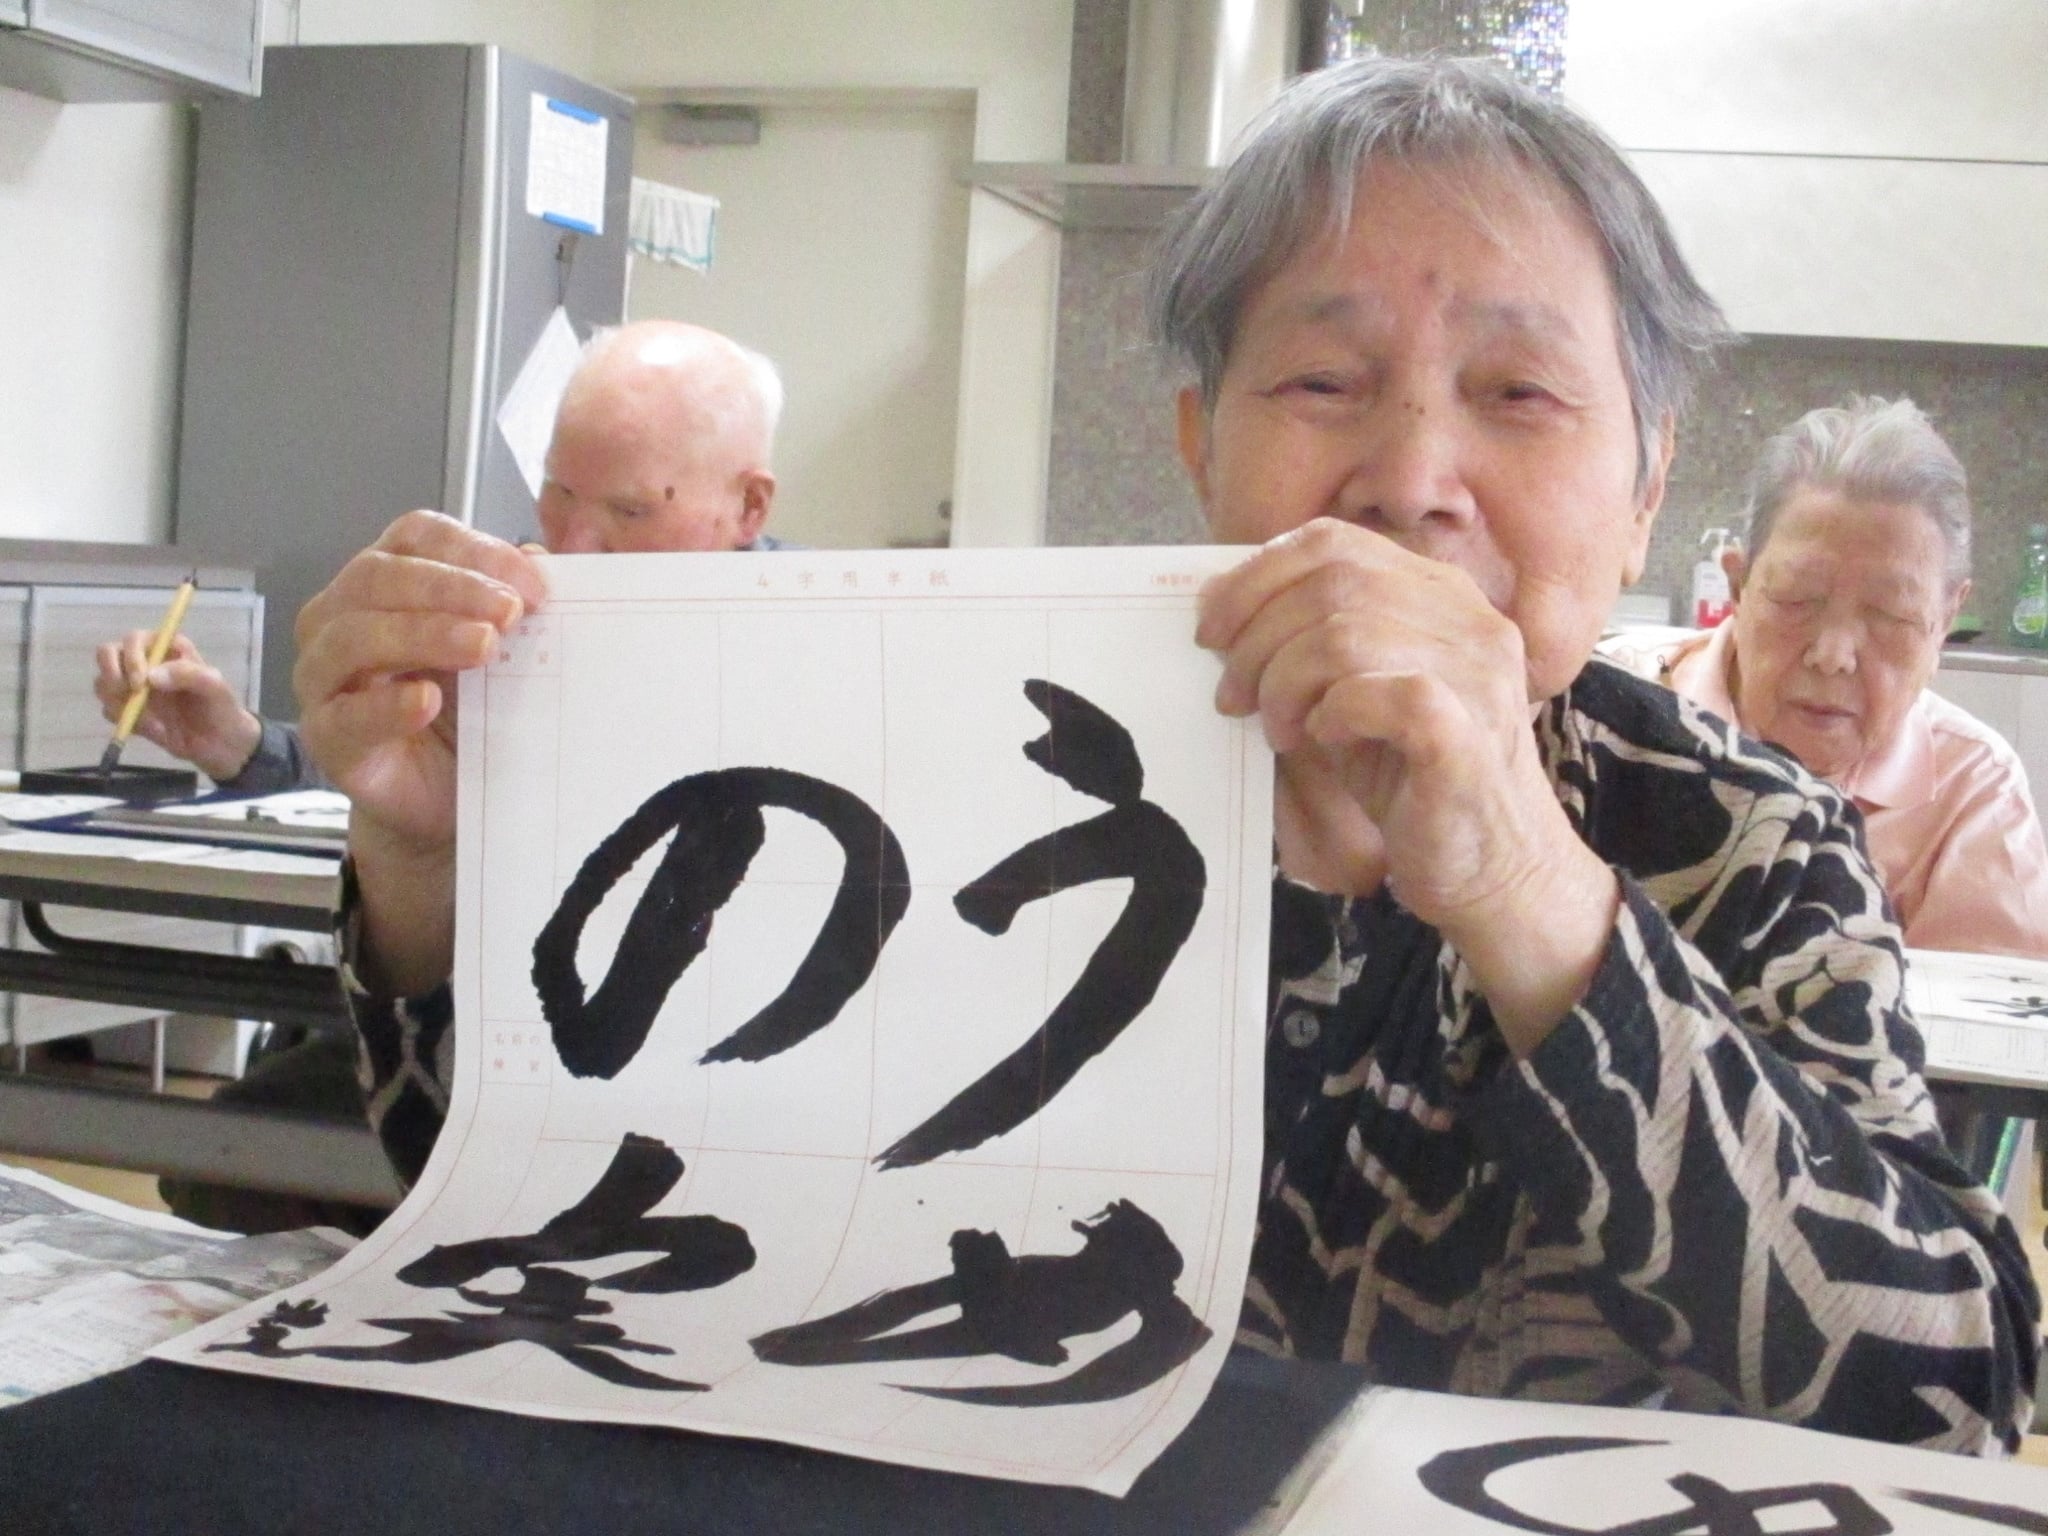 4字用半紙
(練習用)
うめ
の実
名前の
練習